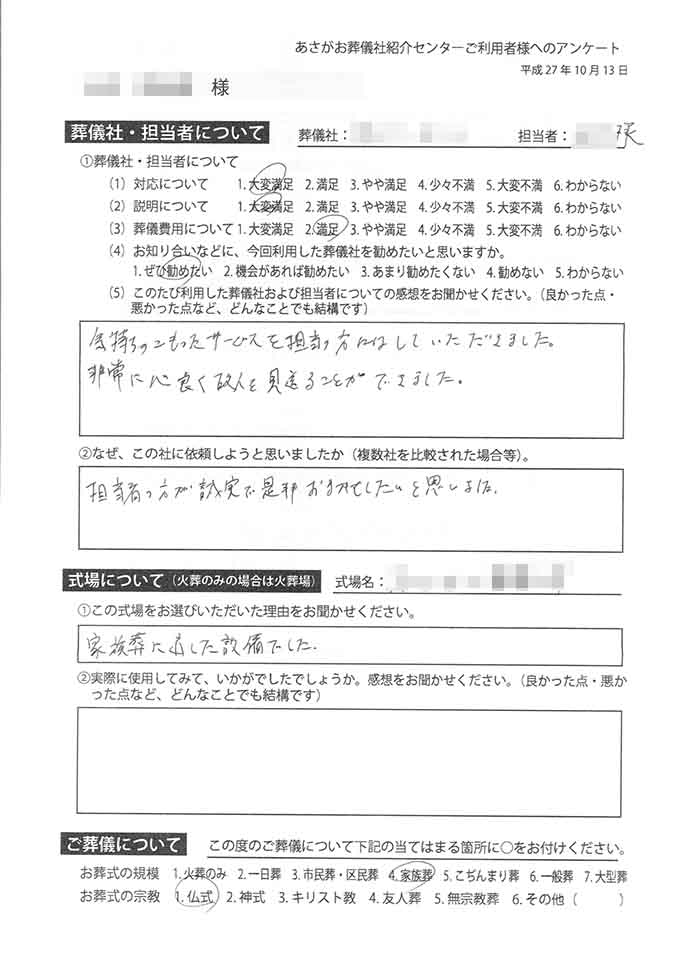 あさがお葬儀社紹介センターご利用者様へのアンケート
平成27年10月13日
様
葬儀社・担当者について 葬儀社： 担当者：
①葬儀社・担当者について
（1）対応について 1.大変満足 2.満足 3.やや満足 4.少々不満 5.大変不満 6.わからない
（2）説明について 1.大変満足 2.満足 3.やや満足 4.少々不満 5.大変不満 6.わからない
（3）葬儀費用について 1.大変満足 2.満足 3.やや満足 4.少々不満 5.大変不満 6.わからない
（4）お知り合いなどに、今回利用した葬儀社を勧めたいと思いますか。
1.ぜひ勧めたい 2.機会があれば勧めたい 3.あまり勧めたくない 4.勧めない 5.わからない
（5）このたび利用した葬儀社および担当者についての感想をお聞かせください。（良かった点・
悪かった点など、どんなことでも結構です）
気持ちのこもったサービスを担当の方にはしていただきました。
非常に心良く故人を見送ることができました。
②なぜ、この社に依頼しようと思いましたか（複数社を比較された場合等）。
担当者の方が誠実で是非おまかせしたいと思いました。
式場について（火葬のみの場合は火葬場） 式場名：
①この式場をお選びいただいた理由をお聞かせください。
家族葬に適した設備でした。
②実際に使用してみて、いかがでしたでしょうか。感想をお聞かせください。（良かった点・悪か
った点など、どんなことでも結構です）
ご葬儀について この度のご葬儀について下記の当てはまる箇所に○をお付けください。
お葬式の規模 1.火葬のみ 2.一日葬 3.市民葬・区民葬 4.家族葬 5.こぢんまり葬 6.一般葬 7.大型葬
お葬式の宗教 1.仏式 2.神式 3.キリスト教 4.友人葬 5.無宗教葬 6.その他（ ）